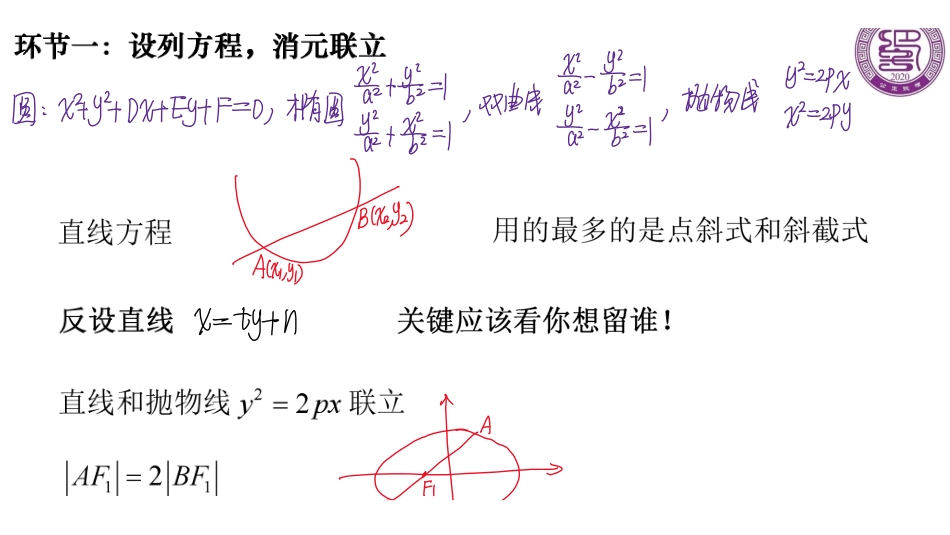 环节一：设列方程，消元联立
圆：x²+y²+Dx+Ey+F=0，椭圆 x²/a²+y²/b²=1 y²/a²+x²/b²=1，双曲线 x²/a²-y²/b²=1 y²/a²-x²/b²=1，抛物线 y²=2px x²=2py
2020
直线方程 A(x₁,y₁) B(x₂,y₂) 用的最多的是点斜式和斜截式
反设直线 x=ty+n 关键应该看你想留谁！
直线和抛物线 y² = 2px 联立
|AF₁| = 2|BF₁|
A
F₁